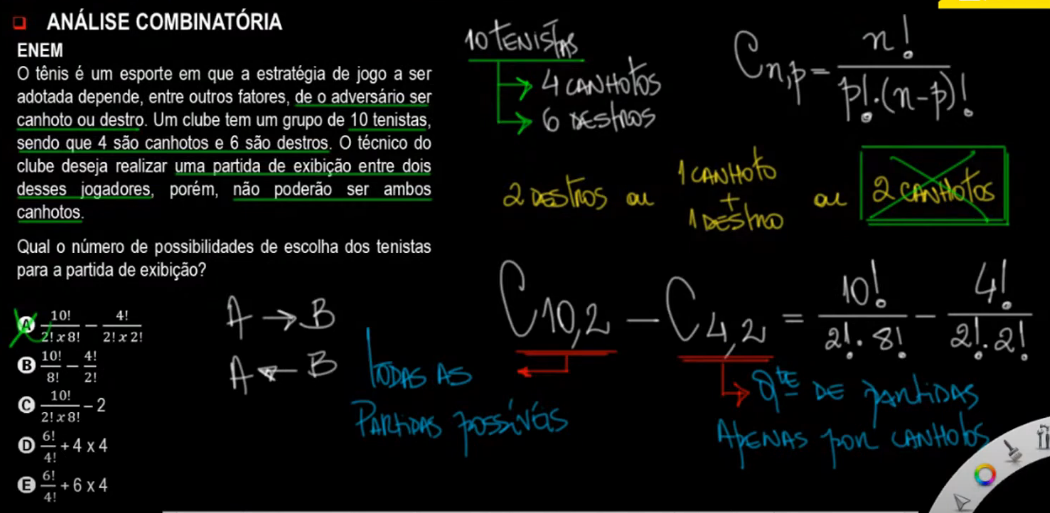 ANÁLISE COMBINATÓRIA
ENEM
O tênis é um esporte em que a estratégia de jogo a ser
adotada depende, entre outros fatores, de o adversário ser
canhoto ou destro. Um clube tem um grupo de 10 tenistas,
sendo que 4 são canhotos e 6 são destros. O técnico do
clube deseja realizar uma partida de exibição entre dois
desses jogadores, porém, não poderão ser ambos
canhotos.
Qual o número de possibilidades de escolha dos tenistas
para a partida de exibição?
A 10!/2! x 8! − 4!/2! x 2!
B 10!/8! − 4!/2!
C 10!/2! x 8! − 2
D 6!/4! + 4 x 4
E 6!/4! + 6 x 4
10 TENISTAS
→ 4 CANHOTOS
→ 6 DESTROS
Cn,p = n!/p!.(n-p)!
2 DESTROS ou 1 CANHOTO + 1 DESTRO ou 2 CANHOTOS
A → B
A ← B
C10,2 − C4,2 = 10!/2!.8! − 4!/2!.2!
TODAS AS
PARTIDAS POSSÍVEIS
QTE DE PARTIDAS
APENAS POR CANHOTOS